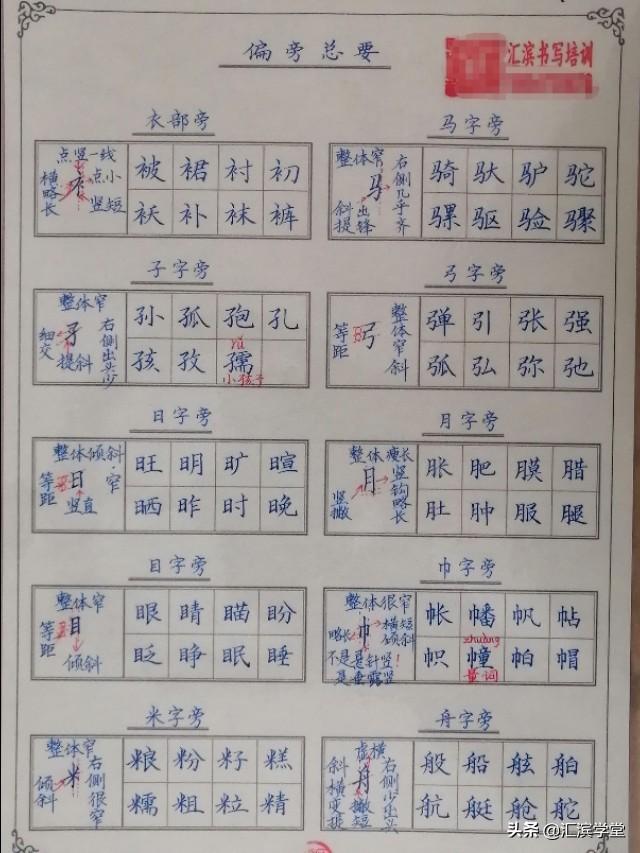 偏旁总要
汇滨书写培训
衣部旁
点竖一线
横略长
点小
竖短
被 裙 衬 初
袄 补 袜 裤
马字旁
整体窄
斜提
出锋
右侧几乎齐
骑 驮 驴 驼
骡 驱 验 骤
子字旁
整体窄
细交
提斜
右侧出头少
孙 孤 孢 孔
孩 孜 孺
小孩子
弓字旁
等距
整体窄斜
弹 引 张 强
弧 弘 弥 弛
日字旁
整体倾斜·窄
等距
竖直
旺 明 旷 暄
晒 昨 时 晚
月字旁
整体瘦长
竖撇
竖钩略长
胀 肥 膜 腊
肚 肿 服 腿
目字旁
整体窄
等距
倾斜
眼 睛 瞄 盼
眨 睁 眠 睡
巾字旁
整体很窄
略长
横短
倾斜
不是是斜竖!
是垂露竖
帐 幡 帆 帖
zhuàng
帜 幢 帕 帽
量词
米字旁
整体窄
倾斜
右侧很窄
粮 粉 籽 糕
糯 粗 粒 精
舟字旁
虚横
斜横变提
撇短
右侧少出头
般 船 舷 舶
航 艇 舱 舵
头条 @汇滨学堂